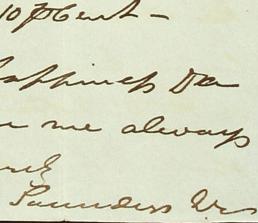 10 pCent –
happiness &c
me always
Saunders